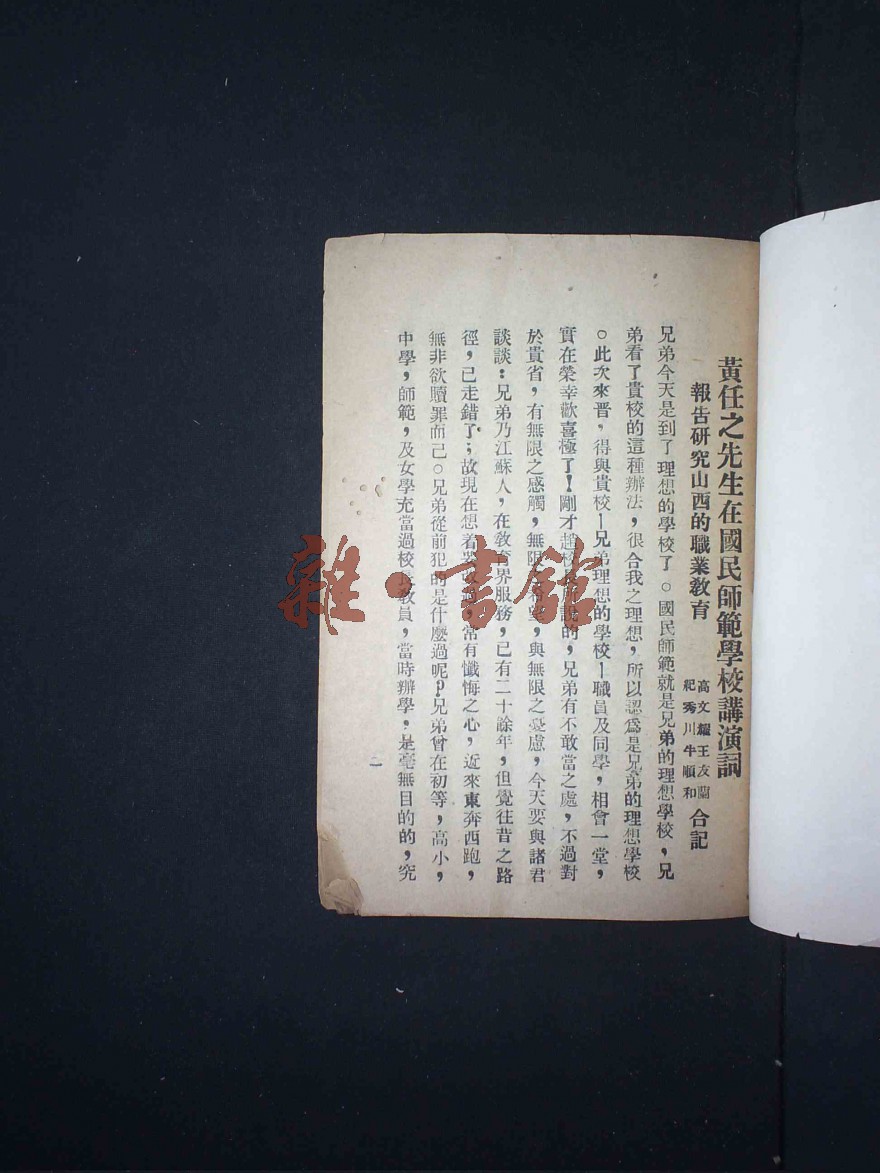 黃任之先生在國民師範學校講演詞
報告研究山西的職業教育
高文耀王友蘭
紀秀川牛順和
合記
兄弟今天是到了理想的學校了。國民師範就是兄弟的理想學校,兄
弟看了貴校的這種辦法,很合我之理想,所以認爲是兄弟的理想學校
。此次來晋,得與貴校—兄弟理想的學校—職員及同學,相會一堂,
實在榮幸歡喜極了!剛才趙校長所說的,兄弟有不敢當之處,不過對
於貴省,有無限之感觸,無限之希望,與無限之憂慮,今天要與諸君
談談:兄弟乃江蘇人,在敎育界服務,已有二十餘年,但覺往昔之路
徑,已走錯了;故現在想着要改過,常有懺悔之心,近來東奔西跑,
無非欲贖罪而已。兄弟從前犯的是什麽過呢?兄弟曾在初等,高小,
中學,師範,及女學充當過校長敎員,當時辦學,是毫無目的的,究
二
雜·書館